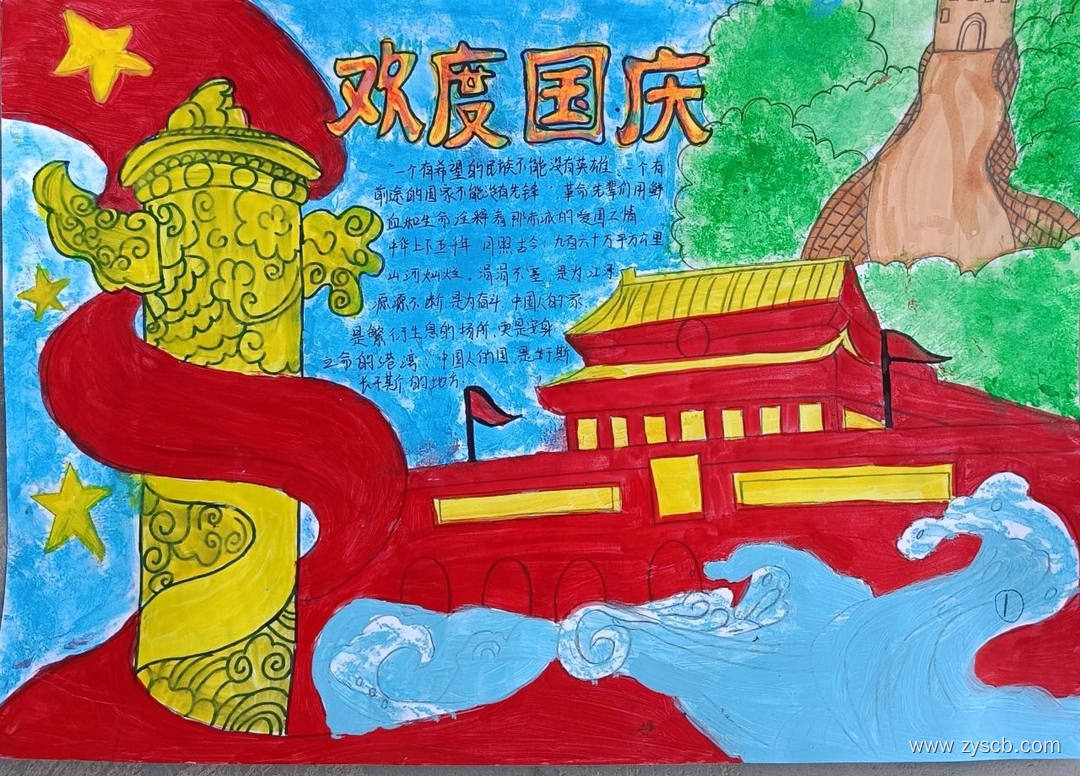 欢度国庆
一个有希望的民族不能没有英雄，一个有
前途的国家不能没有先锋"革命先辈们用鲜
血和生命诠释着那赤诚的爱国之情
上下五千年 月照古今；九百六十万平方公里
山河灿烂。涓涓不塞，是为江
源源不断，是为奋斗，中国人的家，
是繁衍生息的场所，更是安身
立命的港湾；中国人的国，是
长于斯的地方，
①
www.zyscb.com